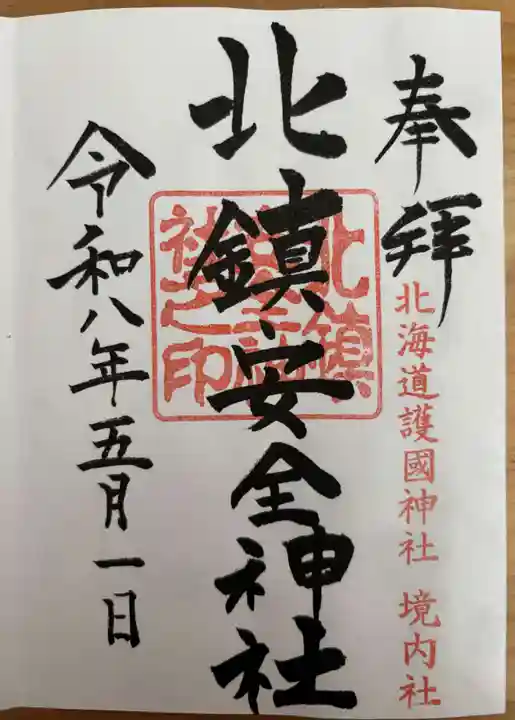 奉拝
北海道護國神社 境内社
北鎮安全神社
北鎮
安全神
社之印
令和八年五月一日